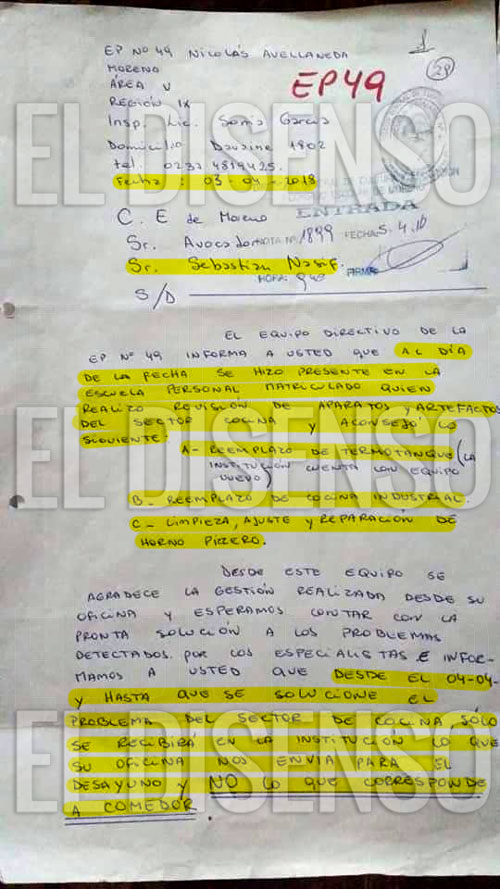 EP Nº 49 NICOLÁS AVELLANEDA
MORENO
ÁREA V
REGIÓN IX
Insp. Lic. Sonia García
Domicilio 1802
Tel. 0237 4819425.
Fecha: 03-04-2018
EP49
28
C. E de Moreno
ENTRADA
Sr.
NOTA Nº 1899 FECHA 5.4.18
Sr. Sebastian Nasif.
HORA: 9
FIRMA
S/D
EL EQUIPO DIRECTIVO DE LA
EP Nº 49 INFORMA A USTED QUE AL DÍA
DE LA FECHA SE HIZO PRESENTE EN LA
ESCUELA PERSONAL MATRICULADO QUIEN
REALIZO REVISIÓN DE APARATOS Y ARTEFACTOS
DEL SECTOR COCINA Y ACONSEJÓ LO
SIGUIENTE:
A- REEMPLAZO DE TERMOTANQUE (LA
INSTITUCIÓN CUENTA CON EQUIPO
NUEVO)
B- REEMPLAZO DE COCINA INDUSTRIAL.
C- LIMPIEZA, AJUSTE Y REPARACIÓN DE
HORNO PIZZERO.
DESDE ESTE EQUIPO SE
AGRADECE LA GESTIÓN REALIZADA DESDE SU
OFICINA Y ESPERAMOS CONTAR CON LA
PRONTA SOLUCIÓN A LOS PROBLEMAS
DETECTADOS POR LOS ESPECIALISTAS E INFOR-
MAMOS A USTED QUE DESDE EL 04-04-
Y HASTA QUE SE SOLUCIONE EL
PROBLEMA DEL SECTOR DE COCINA SÓLO
SE RECIBIRÁ EN LA INSTITUCIÓN LO QUE
SU OFICINA NOS ENVIA PARA EL
DESAYUNO Y NO LO QUE CORRESPONDE
A COMEDOR.
EL DISENSO
EL DISENSO
EL DISENSO
EL DISENSO
EL DISENSO
EL DISENSO